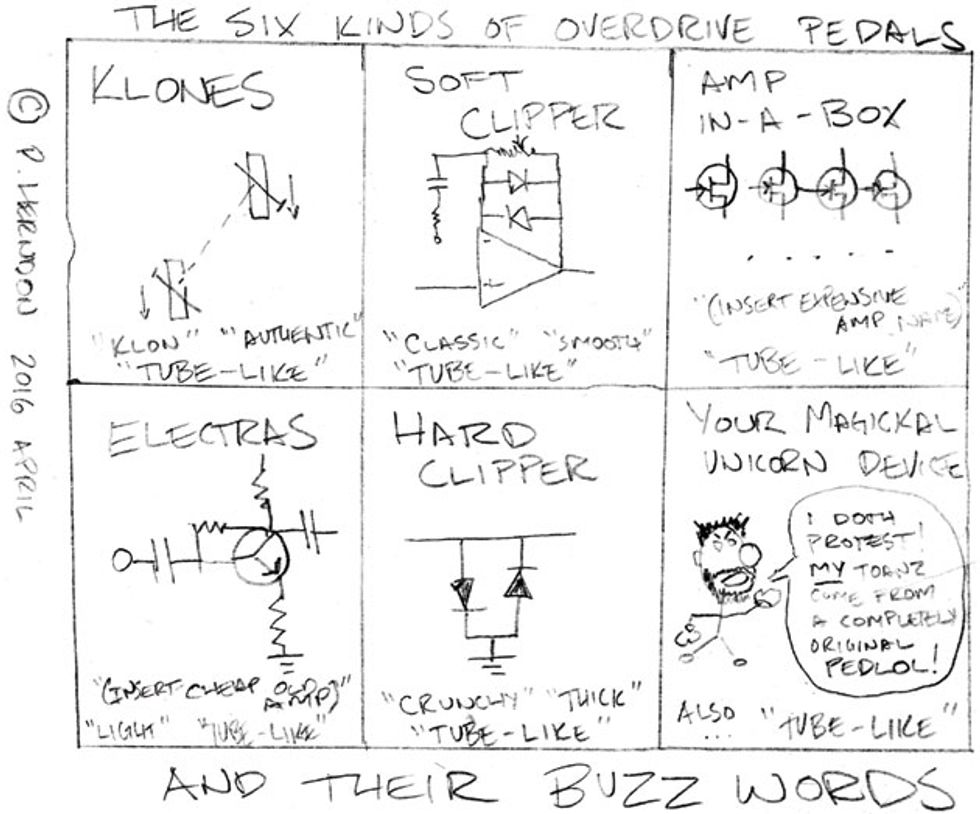 THE SIX KINDS OF OVERDRIVE PEDALS
© P. HERNDON 2016 APRIL
KLONES
"KLON" "AUTHENTIC"
"TUBE-LIKE"
SOFT
CLIPPER
"CLASSIC" "SMOOTH"
"TUBE-LIKE"
AMP
IN-A-BOX
"(INSERT EXPENSIVE
AMP NAME)"
"TUBE-LIKE"
ELECTRAS
"(INSERT CHEAP OLD
AMP)"
"LIGHT" "TUBE-LIKE"
HARD
CLIPPER
"CRUNCHY" "THICK"
"TUBE-LIKE"
YOUR MAGICKAL
UNICORN DEVICE
I DOTH
PROTEST!
MY TOANZ
COME FROM
A COMPLETELY
ORIGINAL
PEDLOL!
ALSO ... "TUBE-LIKE"
AND THEIR BUZZ WORDS